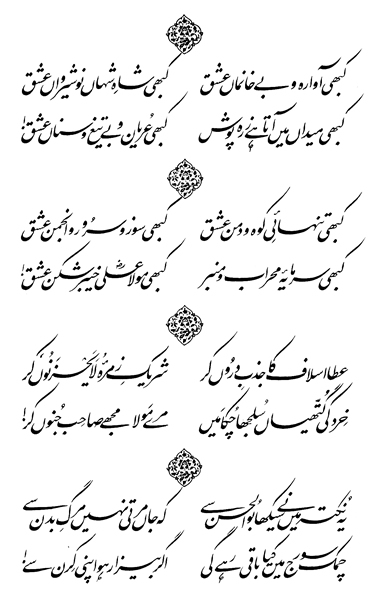 کبھی آوارہ و بے خانماں عشق کبھی شاہِ شہاں نوشیرواں عشق
کبھی میداں میں آتا ہے زرہ پوش کبھی عُریان و بے تیغ و سناں عشق!
کبھی تنہائیِ کوہ و دمن عشق کبھی سوز و سرور و انجمن عشق
کبھی سرمایۂ محراب و منبر کبھی مولا علیؓ خیبر شکن عشق!
عطا اسلاف کا جذبِ دُروں کر شریکِ زمرۂ لَا یَحْزَنُوْں کر
خرد کی گتھیاں سُلجھا چکا مَیں مرے مَولا مجھے صاحب جُنوں کر!
یہ نکتہ میں نے سیکھا بُوالحسن سے کہ جاں مرتی نہیں مرگِ بدن سے
چمک سورج میں کیا باقی رہے گی اگر بیزار ہو اپنی کِرن سے!